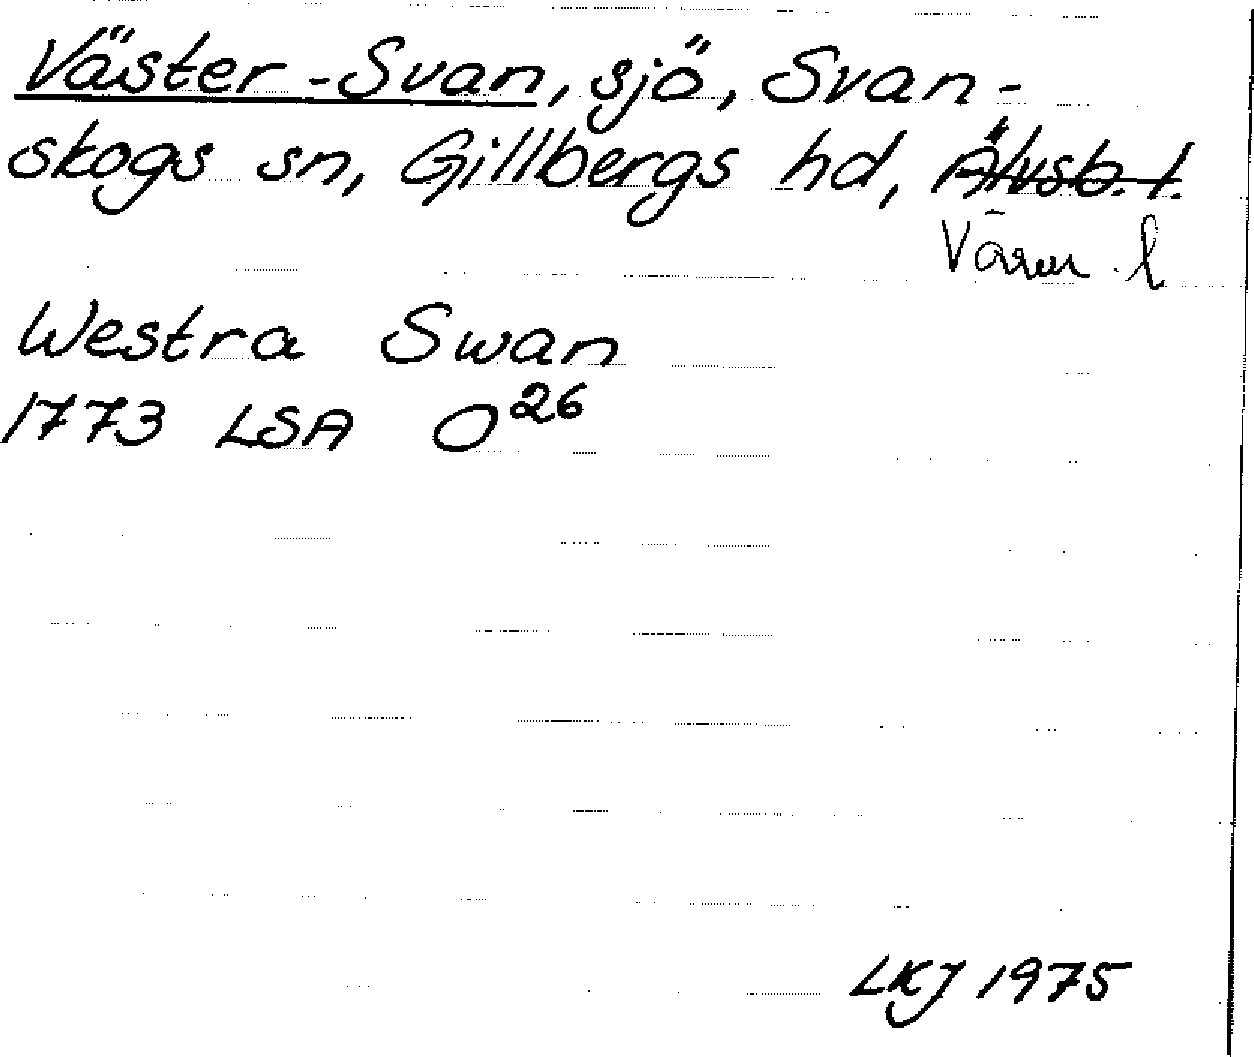 Väster-Svan, sjö, Svan-
skogs sn, Gillbergs hd, Älvsb. l.
Värm. l
Westra Swan
1773 LSA O26
LKJ 1975